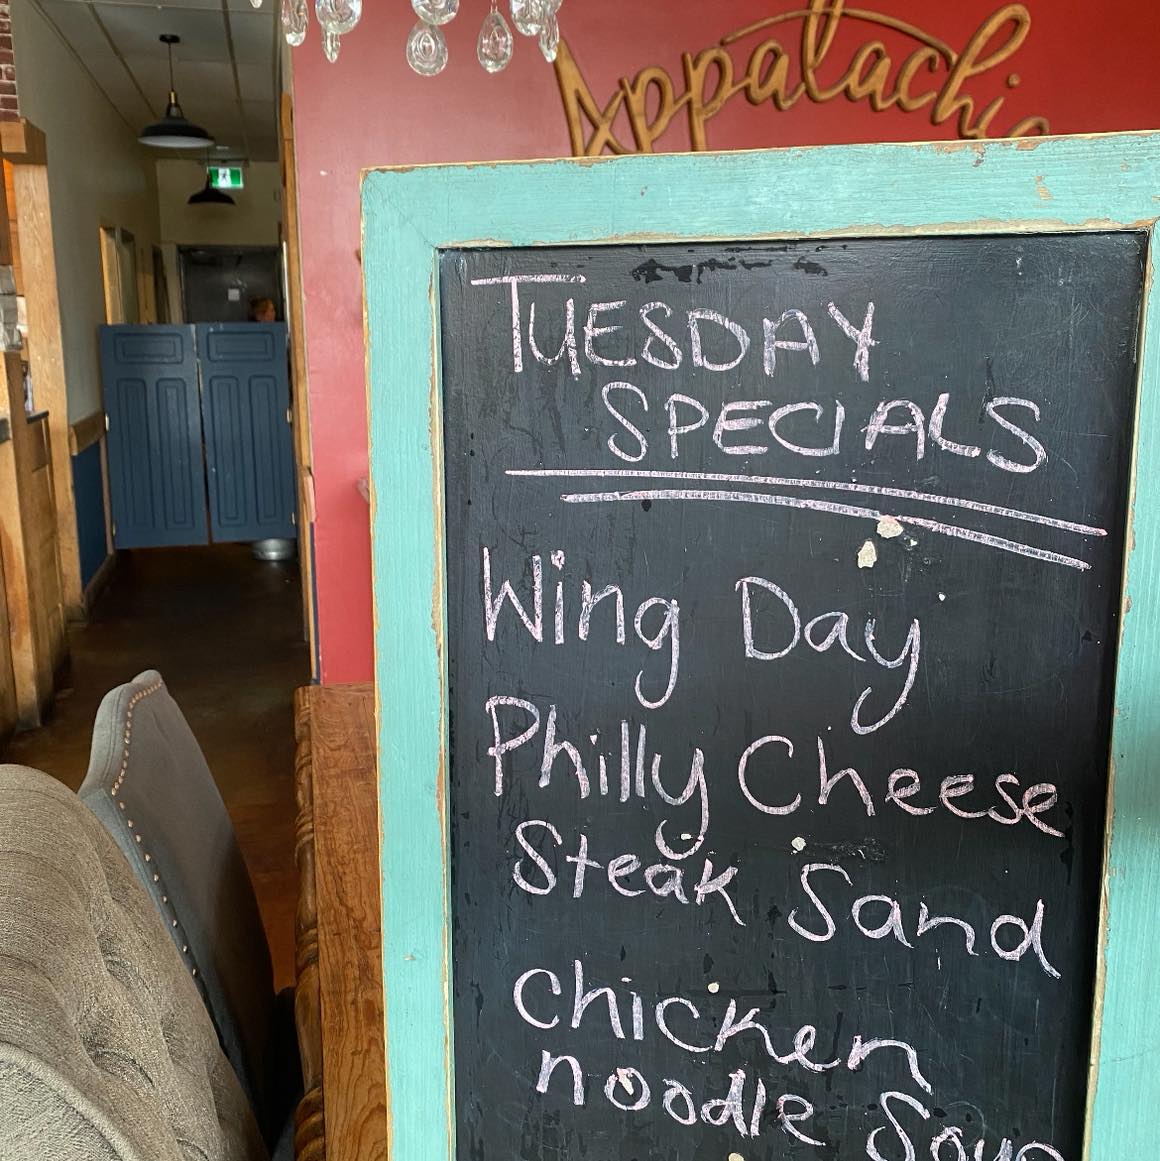 Appalachia
TUESDAY
SPECIALS
Wing Day
Philly Cheese
Steak Sand
chicken
noodle Soup